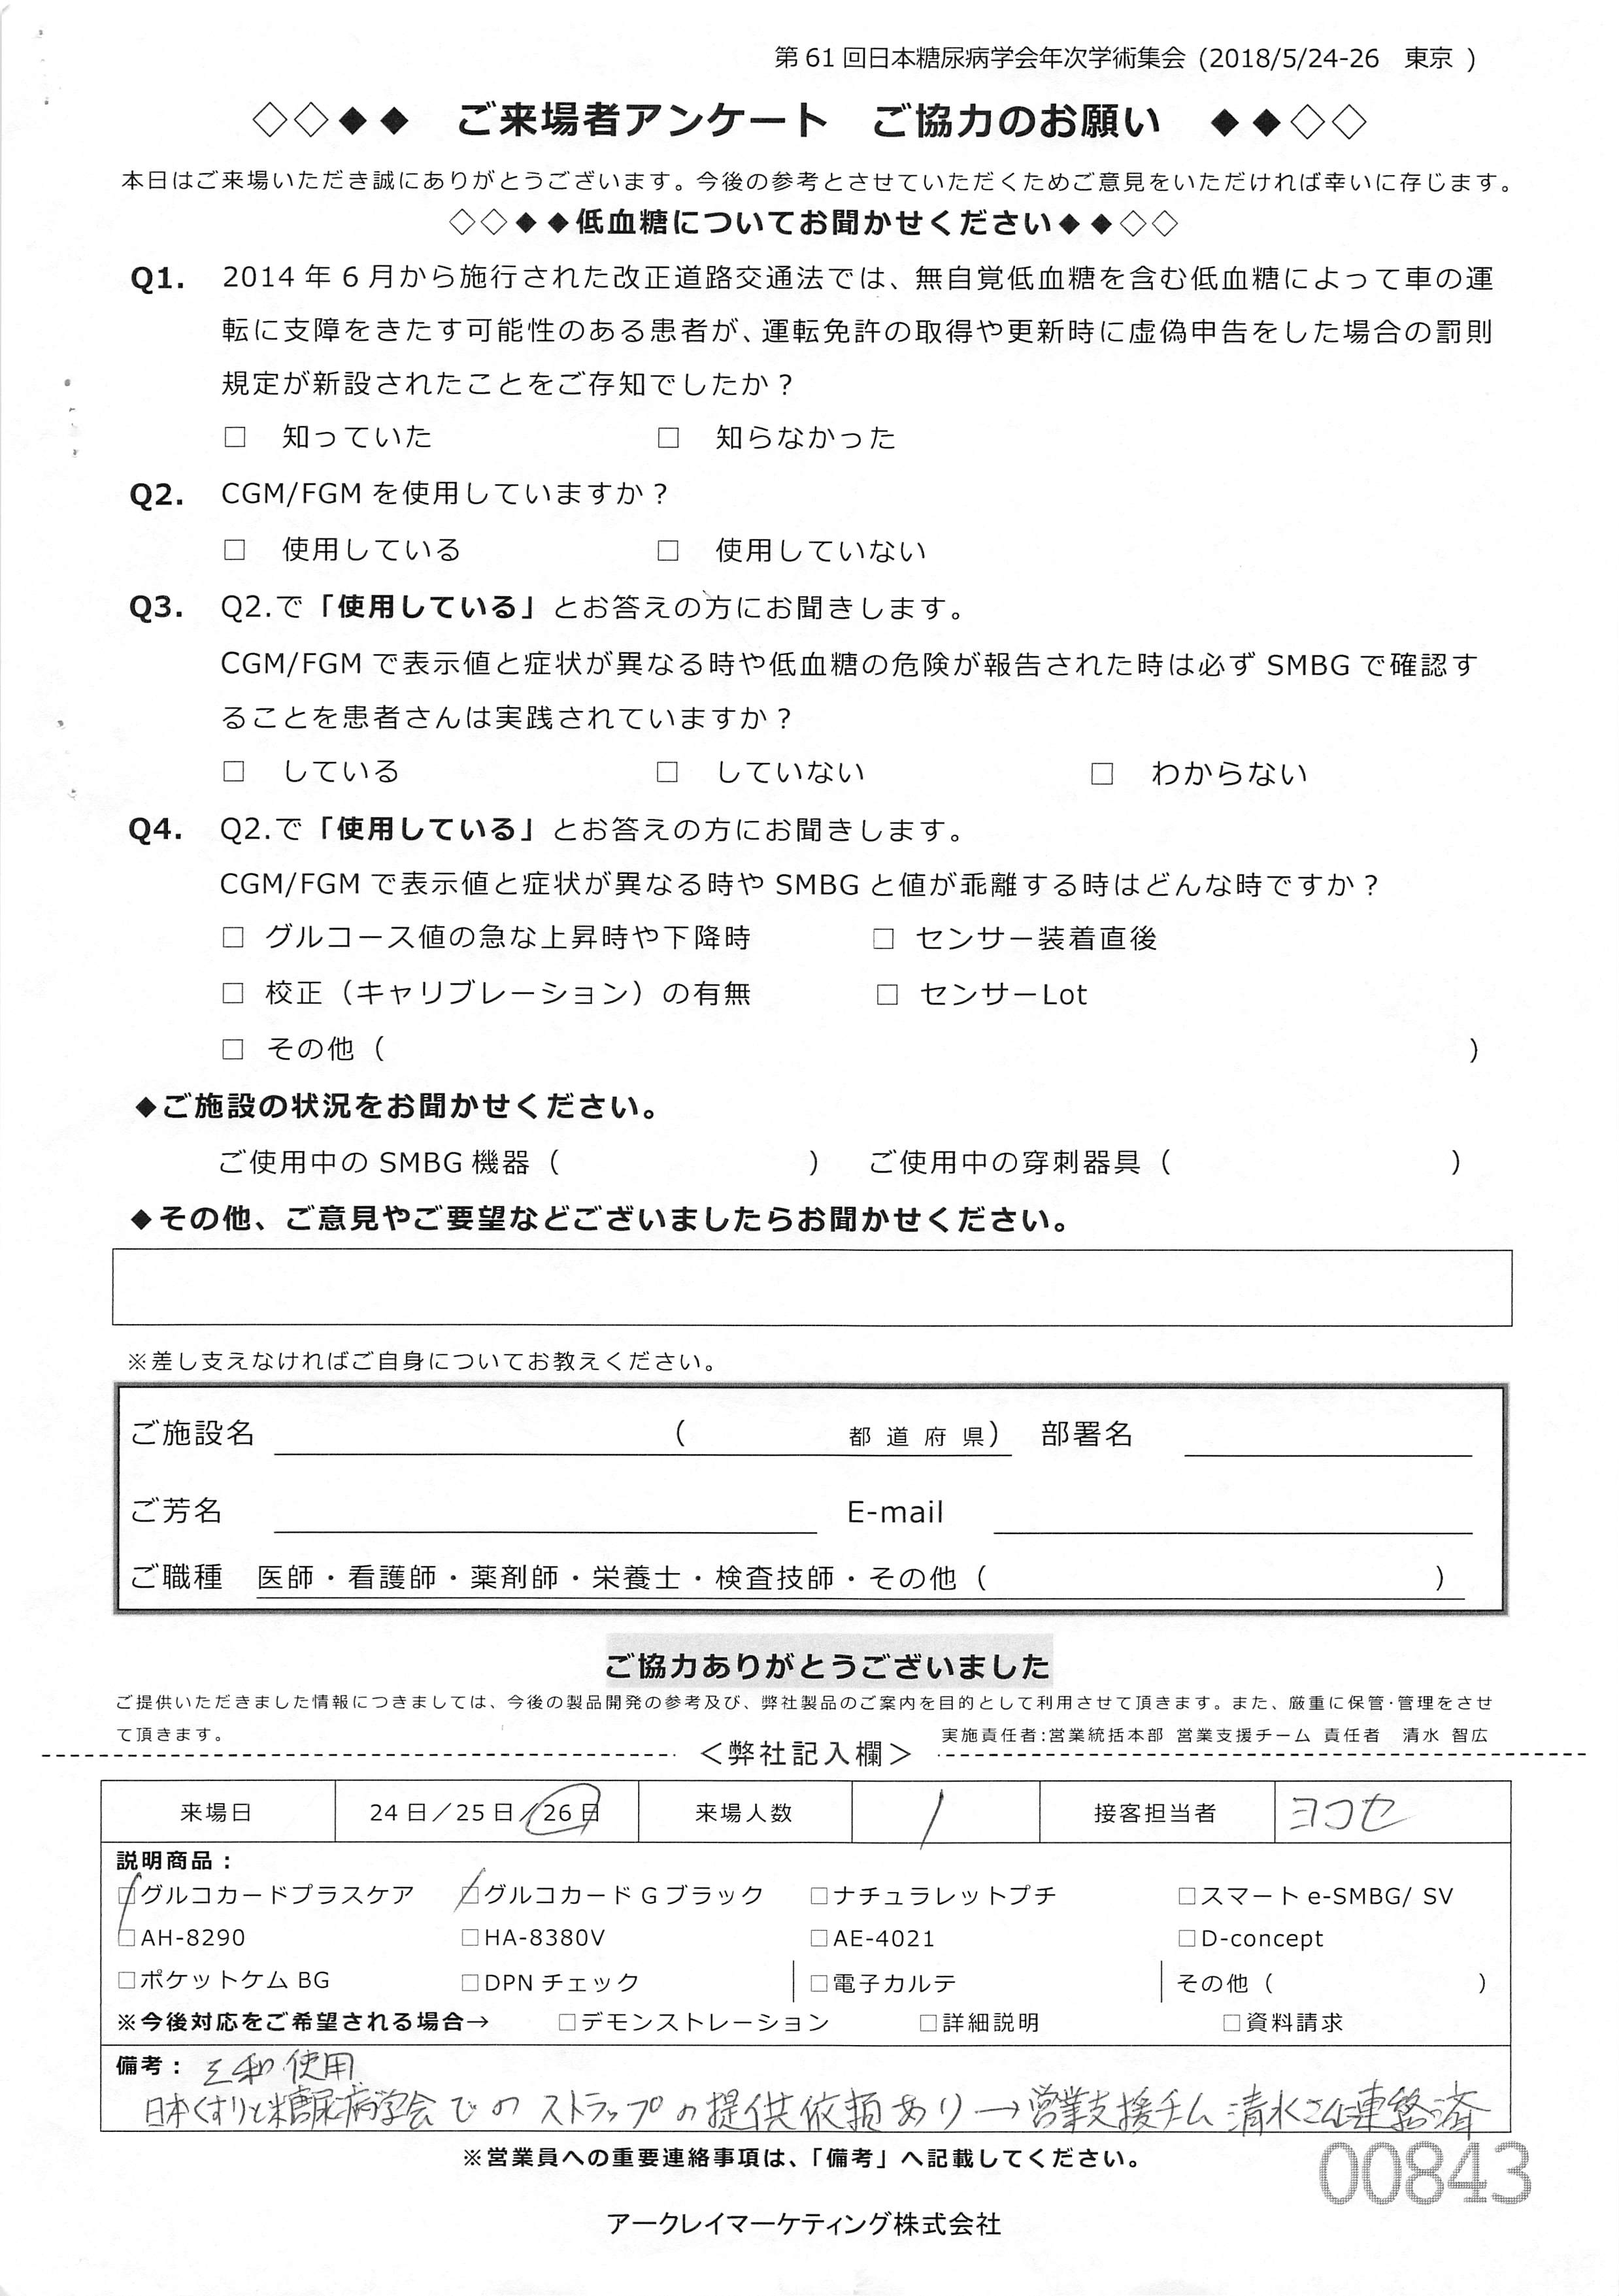 第61回日本糖尿病学会年次学術集会 (2018/5/24-26　東京 )
◇◇◆◆　ご来場者アンケート　ご協力のお願い　◆◆◇◇
本日はご来場いただき誠にありがとうございます。今後の参考とさせていただくためご意見をいただければ幸いに存じます。
◇◇◆◆低血糖についてお聞かせください◆◆◇◇
Q1.　2014年6月から施行された改正道路交通法では、無自覚低血糖を含む低血糖によって車の運
転に支障をきたす可能性のある患者が、運転免許の取得や更新時に虚偽申告をした場合の罰則
規定が新設されたことをご存知でしたか？
□　知っていた　□　知らなかった
Q2.　CGM/FGMを使用していますか？
□　使用している　□　使用していない
Q3.　Q2.で「使用している」とお答えの方にお聞きします。
CGM/FGMで表示値と症状が異なる時や低血糖の危険が報告された時は必ずSMBGで確認す
ることを患者さんは実践されていますか？
□　している　□　していない　□　わからない
Q4.　Q2.で「使用している」とお答えの方にお聞きします。
CGM/FGMで表示値と症状が異なる時やSMBGと値が乖離する時はどんな時ですか？
□ グルコース値の急な上昇時や下降時　□ センサー装着直後
□ 校正（キャリブレーション）の有無　□ センサーLot
□ その他（　）
◆ご施設の状況をお聞かせください。
ご使用中のSMBG機器（　）　ご使用中の穿刺器具（　）
◆その他、ご意見やご要望などございましたらお聞かせください。
※差し支えなければご自身についてお教えください。
ご施設名　（　都 道 府 県）　部署名
ご芳名　E-mail
ご職種　医師・看護師・薬剤師・栄養士・検査技師・その他（　）
ご協力ありがとうございました
ご提供いただきました情報につきましては、今後の製品開発の参考及び、弊社製品のご案内を目的として利用させて頂きます。また、厳重に保管・管理をさせ
て頂きます。　実施責任者:営業統括本部 営業支援チーム 責任者　清水 智広
＜弊社記入欄＞
来場日　24日／25日／26日　来場人数　1　接客担当者　ヨコセ
説明商品：
□グルコカードプラスケア　□グルコカードGブラック　□ナチュラレットプチ　□スマートe-SMBG/ SV
□AH-8290　□HA-8380V　□AE-4021　□D-concept
□ポケットケムBG　□DPNチェック　□電子カルテ　その他（　）
※今後対応をご希望される場合→　□デモンストレーション　□詳細説明　□資料請求
備考：三和使用
日本くすりと糖尿病学会でのストラップの提供依頼あり→営業支援チーム清水さんに連絡済
※営業員への重要連絡事項は、「備考」へ記載してください。
00843
アークレイマーケティング株式会社